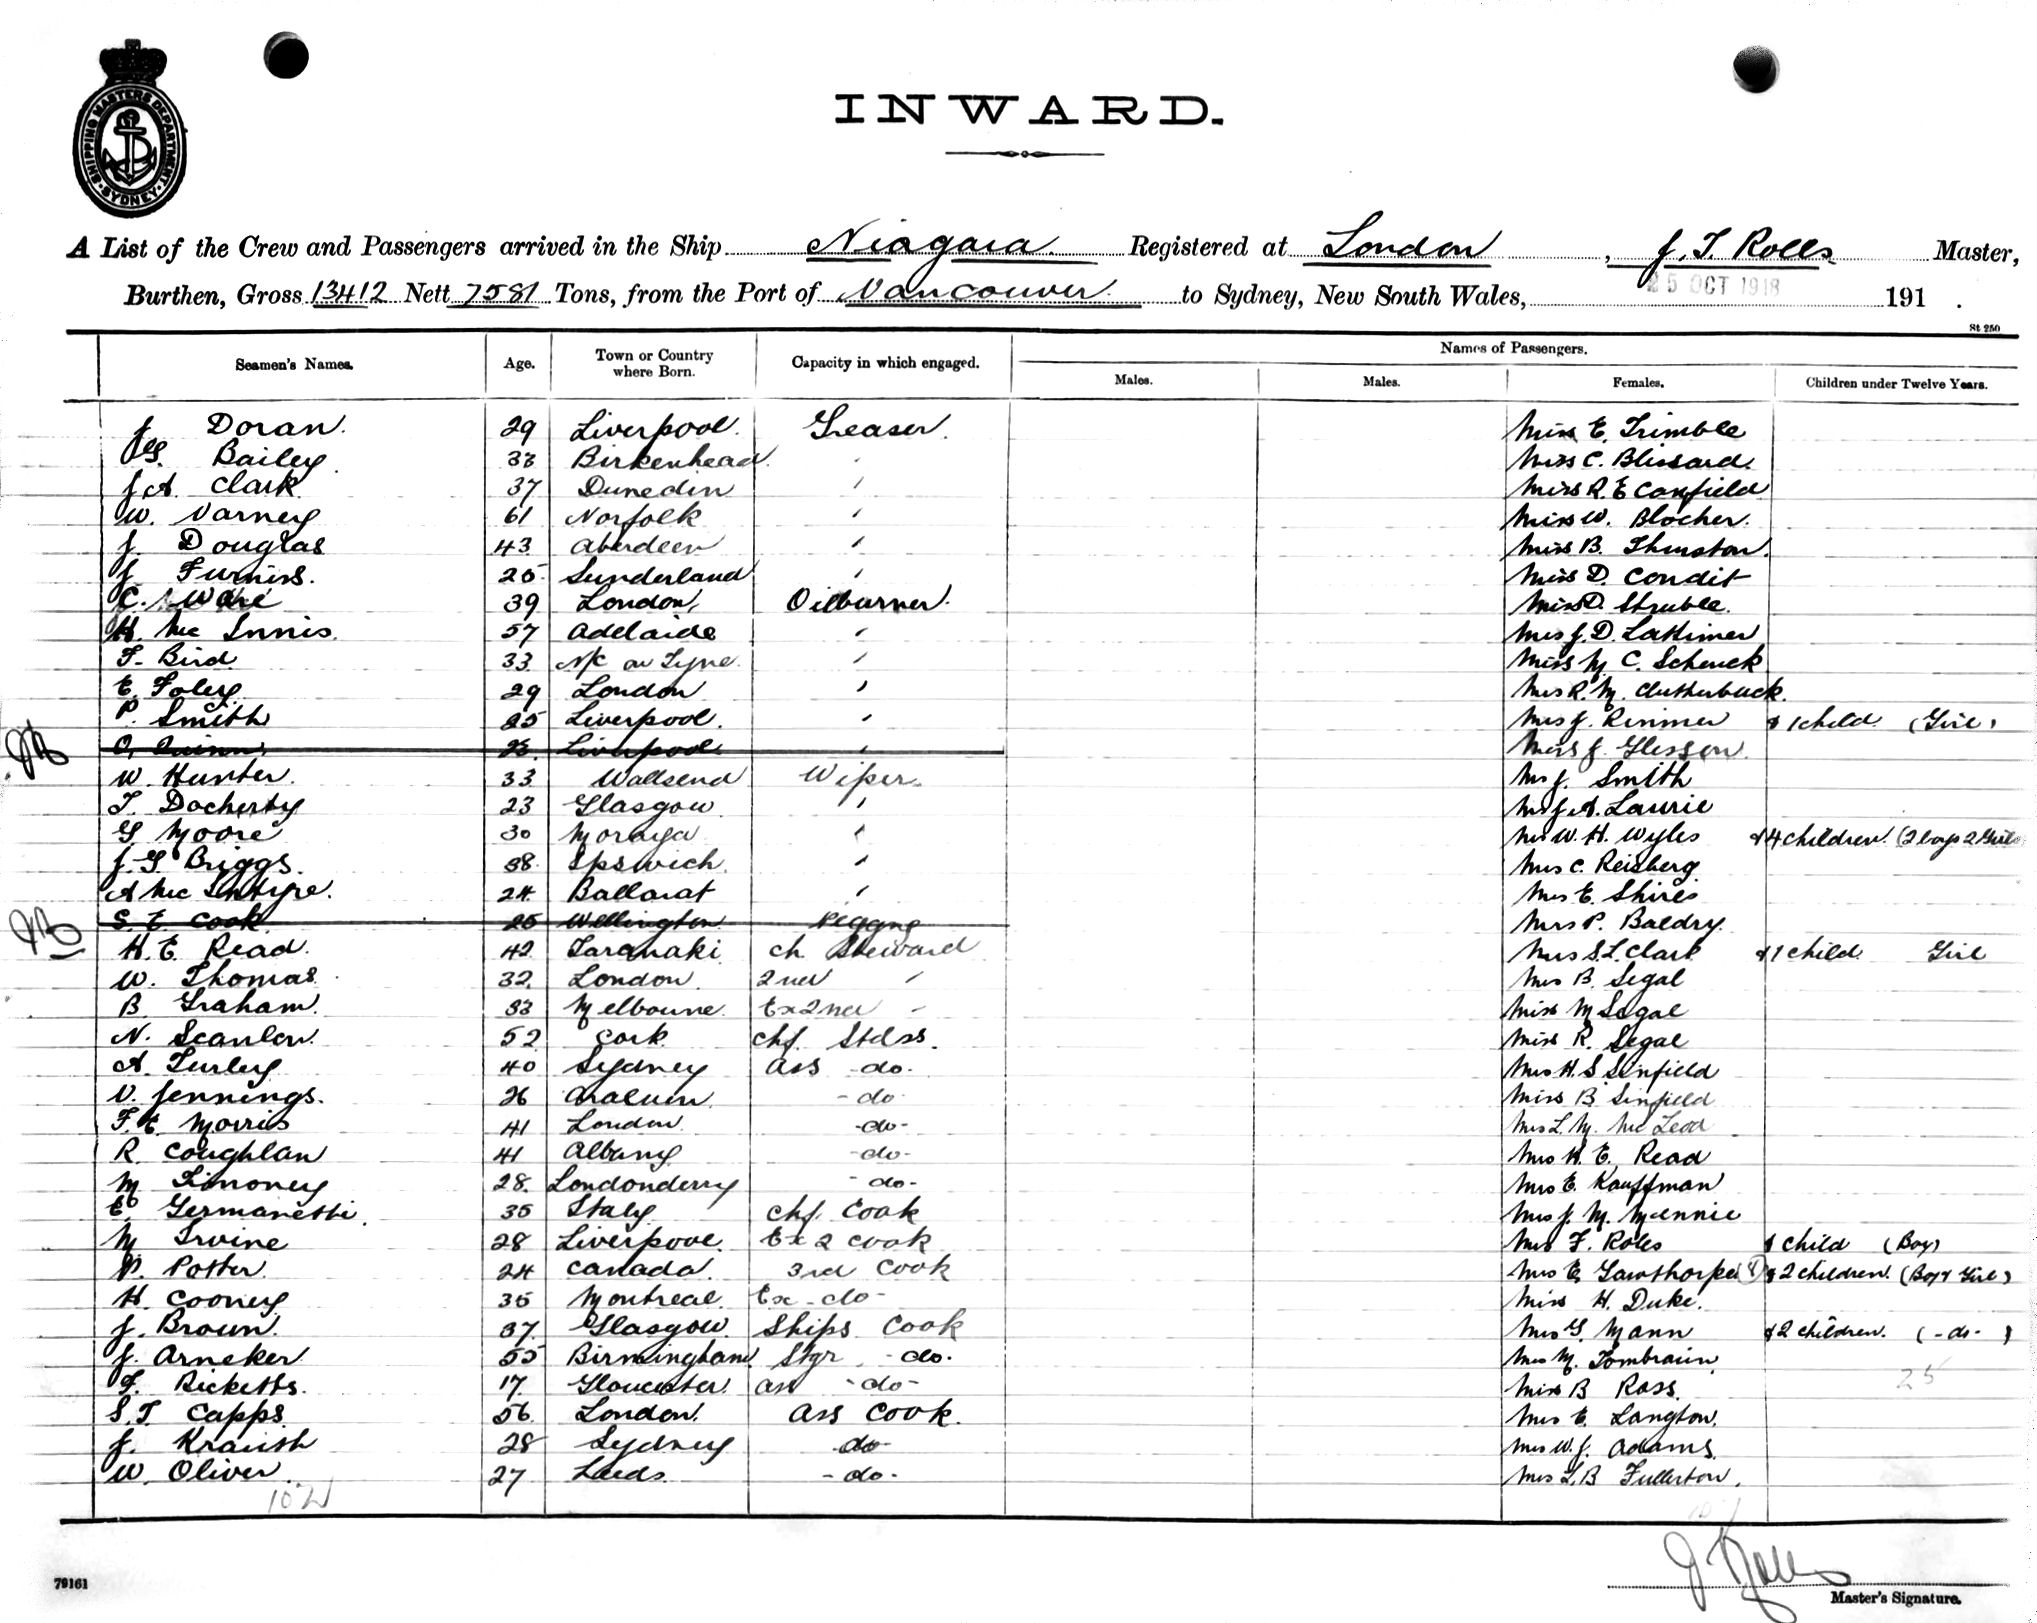 SHIPPING MASTERS DEPARTMENT SYDNEY
INWARD.
A List of the Crew and Passengers arrived in the Ship Niagara Registered at London, J. T. Rolls Master,
Burthen, Gross 13412 Nett 7581 Tons, from the Port of Vancouver to Sydney, New South Wales, 25 OCT 1918 191 .
St 250
Seamen's Names. Age. Town or Country where Born. Capacity in which engaged. Names of Passengers.
Males. Males. Females. Children under Twelve Years.
J Doran. 29 Liverpool. Greaser. Miss E. Trimble
Bailey. 33 Birkenhead. " Miss C. Blissard.
J A. Clark 37 Dunedin " Miss R. E Canfield
W. Varney 61 Norfolk " Miss W. Blocher.
J. Douglas 43 Aberdeen " Miss B. Thurston.
J. Furniss. 25 Sunderland " Miss D. Condit
C. Ware 39 London, Oilburner. Miss D. Struble.
H. Mc Innis. 57 Adelaide " Mrs J. D. Lattimer
F. Bird 33 N/C on Tyne. " Miss M C. Schenck
E. Foley 29 London " Mrs R. M. Clutterbuck.
P. Smith 25 Liverpool. " Mrs J. Rimmer & 1 child (Girl)
Quinn 23. Liverpool " J. Glesson
W. Hunter. 33 Wallsend Wiper. Mrs J. Smith
T. Docherty 23 Glasgow " Mrs J A. Laurie
G Moore 30 " Mrs W. H. Wyles & 4 children. (2 boys 2 Girls
J. G Briggs. 38. Ipswich. " Mrs C. Reisberg
A Mc Intyre. 24. Ballarat " Mrs E. Shires
S. E Cook 25 Wellington Mrs P. Baldry.
H. E. Read. 42 Taranaki Ch Steward Mrs S. L. Clark & 1 child. Girl
W. Thomas. 32. London. 2nd " Mrs B. Segal
B Graham. 33 Melbourne. Ex 2nd " Miss M Segal
N. Scanlon. 52 Cork Chf. Stdss. Miss R. Segal
A. Turley 40 Sydney Ass -do- Mrs H. S. Sinfield
V. Jennings. 26 Araluen. -do- Miss B. Sinfield
F. E. Morris 41 London. -do- Mrs L. M. Mc Leod
R. Coughlan 41 Albany -do- Mrs H. E. Read
M Timoney 28. Londonderry -do- Mrs E. Kauffman
E. Germanetti. 35 Italy Chf. Cook Mrs J. M. McInnie
M Irvine 28 Liverpool. Ex 2 Cook Mrs F. Rolls & child (Boy)
P. Potter. 24 Canada. 3rd Cook Mrs E. Gawthorpe & 2 children. (Boy & Girl)
H. Cooney 35 Montreal. Ex -do- Miss H. Duke.
J. Brown. 37. Glasgow. Ships Cook Mrs G. Mann & 2 children. (-do-)
J. Arneker 55 Birmingham Stgr -do- Mrs M. Tombraun
F. Ricketts. 17. Gloucester. ass -do- Miss B Ross. 25
S. T Capps. 56. London. Ass Cook. Mrs E. Langton.
J. Kraush 28 Sydney -do- Mrs W. J. Adams.
W. Oliver. 27 Leeds. -do- Mrs L. B Fullerton.
102
J T Rolls
79161
Master's Signature.